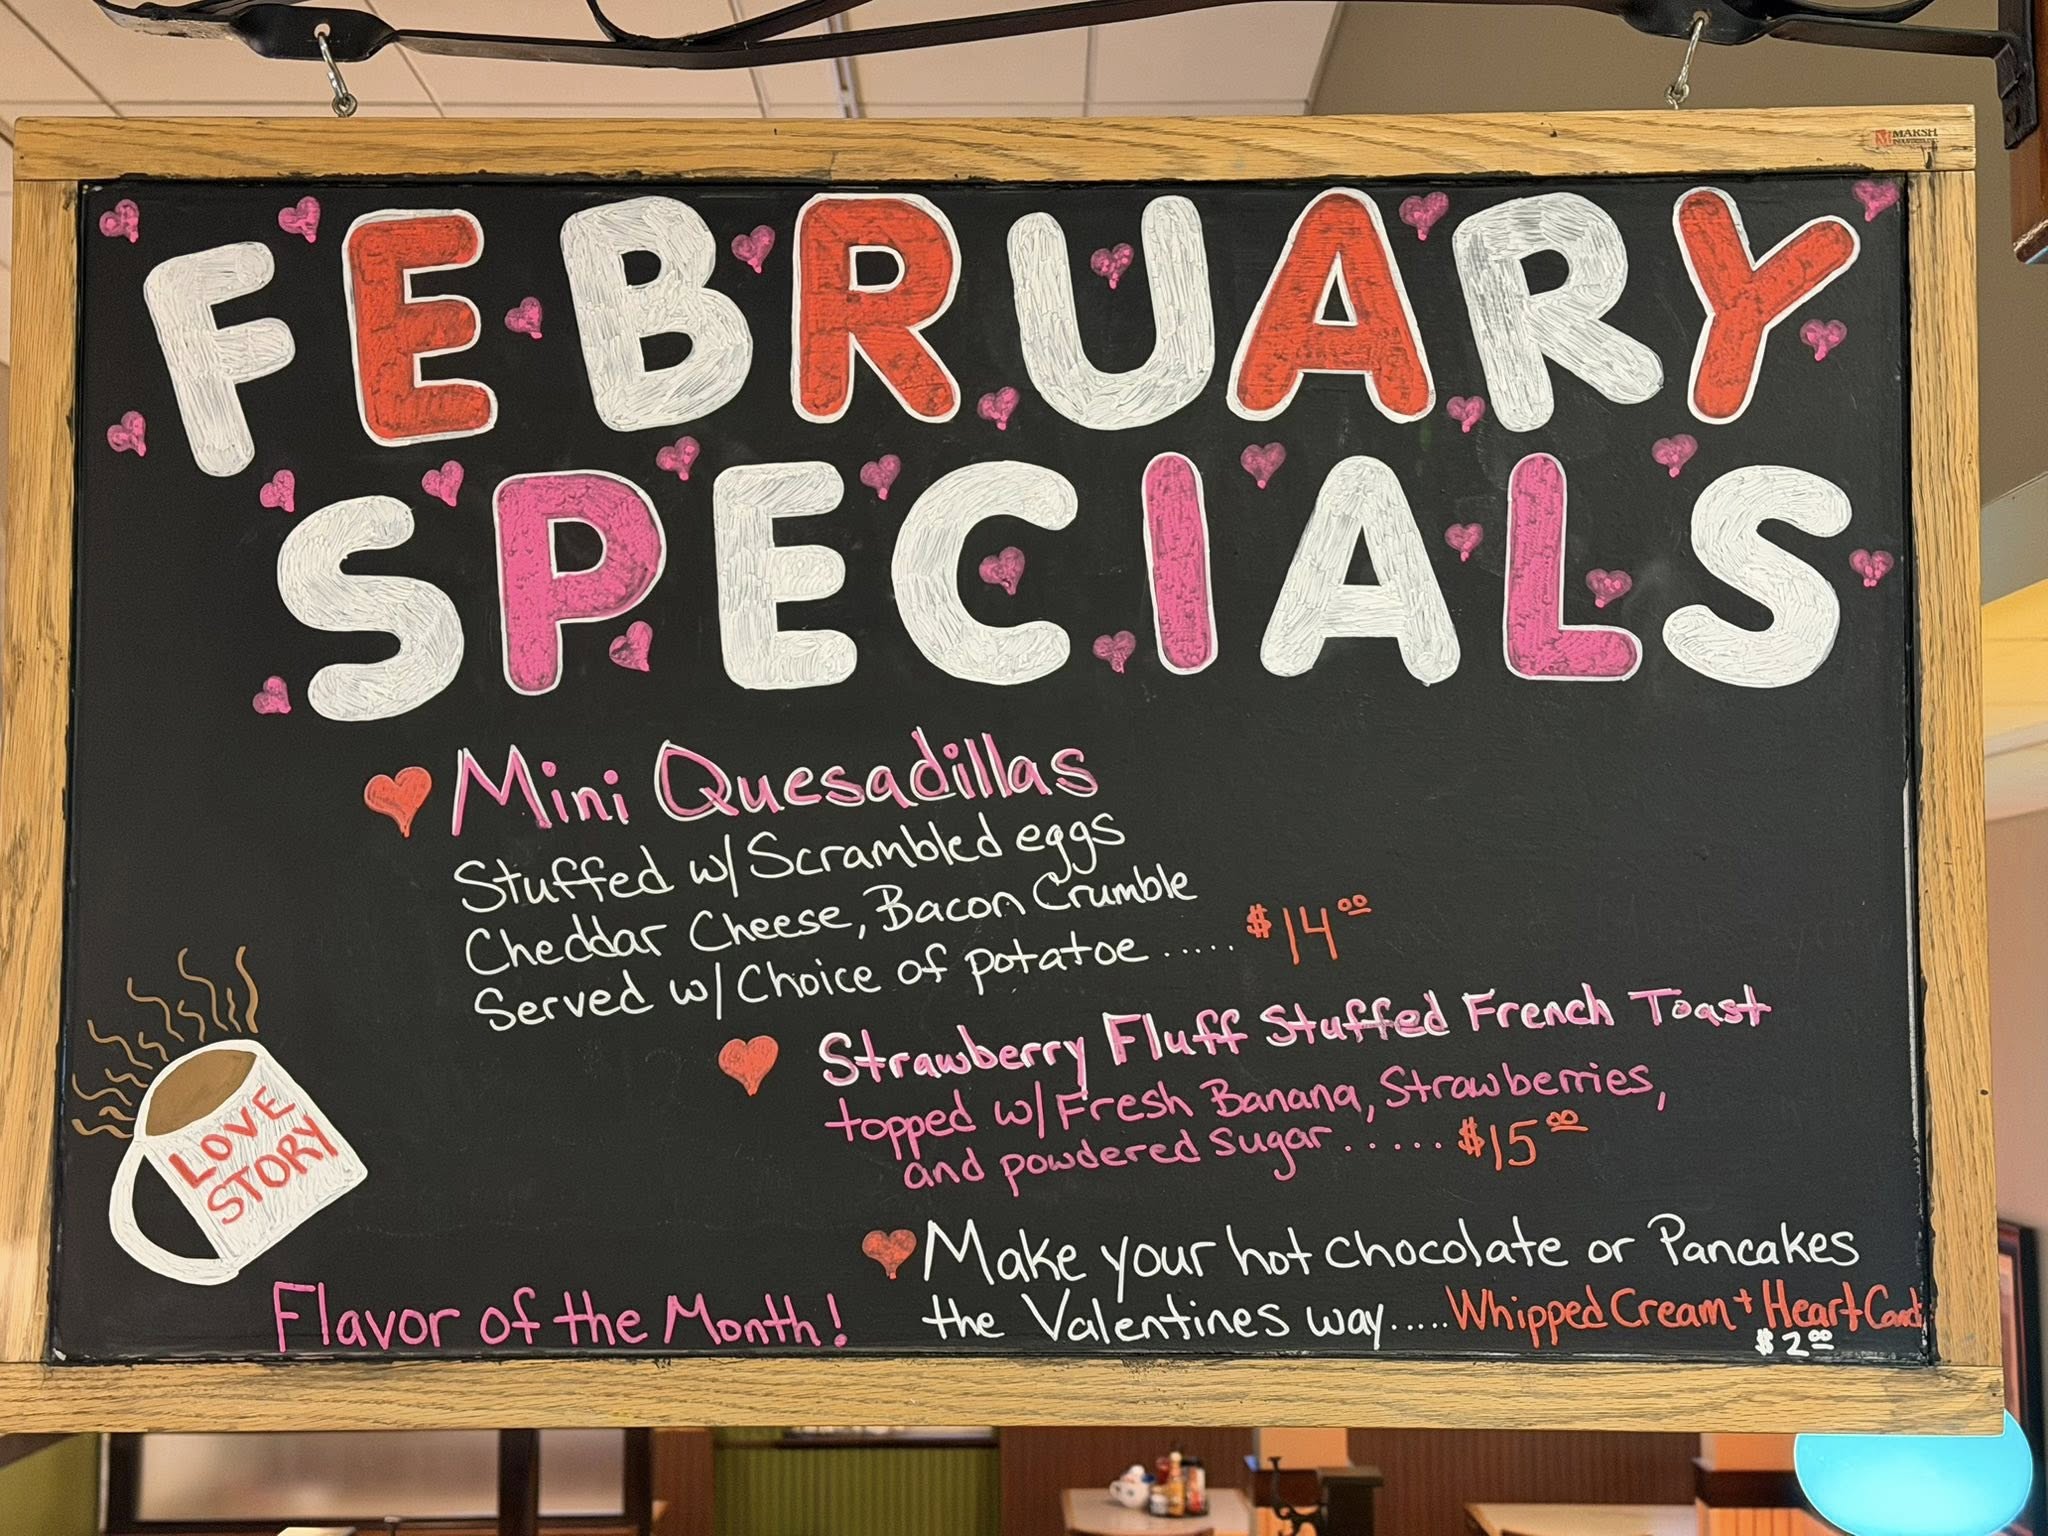 MARSH
FEBRUARY
SPECIALS
Mini Quesadillas
Stuffed w/ Scrambled eggs
Cheddar Cheese, Bacon Crumble
Served w/ Choice of potatoe ..... $14.00
Strawberry Fluff Stuffed French Toast
topped w/ Fresh Banana, Strawberries,
and powdered sugar ...... $15.00
LOVE
STORY
Flavor of the Month!
Make your hot chocolate or Pancakes
the Valentines way.....Whipped Cream + Heart Candi
$2.00